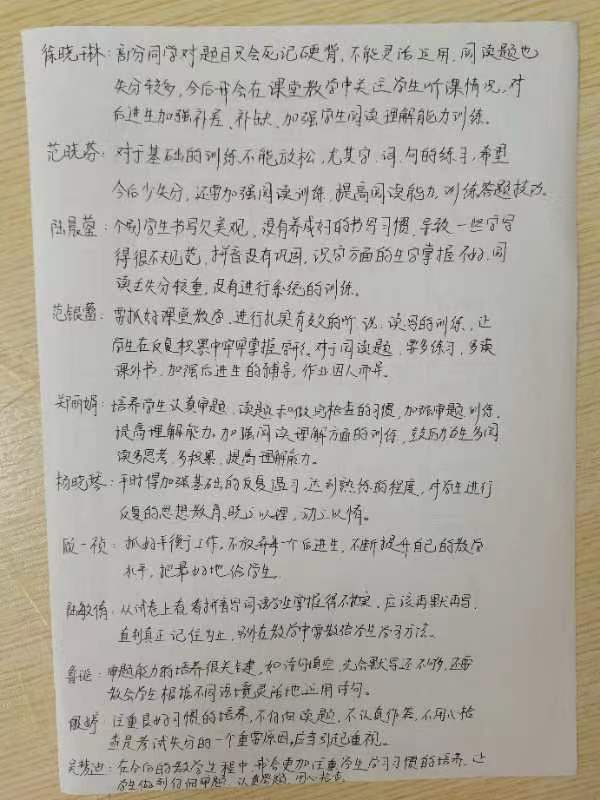 徐晓琳：部份同学对题目只会死记硬背，不能灵活运用，阅读题也
失分较多，今后我会在课堂教学中关注学生听课情况，对
后进生加强补差、补缺、加强学生阅读理解能力训练。
范晓芬：对于基础的训练不能放松，尤其字、词、句的练习，希望
今后少失分，还需加强阅读训练，提高阅读能力，训练答题技巧。
陆晨莹：个别学生书写欠美观，没有养成好的书写习惯，导致一些字写
得很不规范，拼音没有巩固，识字方面的生字掌握不好，阅
读失分较重，没有进行系统的训练。
范银蕾：要抓好课堂教学，进行扎实有效的听、说、读写的训练，让
学生在反复积累中牢牢掌握字形。对于阅读题，要多练习，多读
课外书，加强后进生的辅导，作业因人而异。
郑丽娟：培养学生认真审题，读题去做完检查的习惯，加强审题训练，
提高理解能力。加强阅读理解方面的训练，鼓励学生多阅
读多思考，多积累，提高理解能力。
杨晓琴：平时得加强基础的反复温习，达到熟练的程度，对学生进行
反复的思想教育，晓之以理，动之以情。
顾一祯：抓好平衡工作，不放弃每一个后进生，不断提升自己的教学
水平，把最好地给学生。
陆敏倩：从试卷上看看拼音写词语学生掌握得不扎实，应该再默再写，
直到真正记住为止，另外在教学中要教给学生学习方法。
鲁诞：审题能力的培养很关键，如诗句填空，光会默写还不够，还要
教会学生根据不同语境灵活地运用诗句。
婷：注重良好习惯的培养，不仔细读题，不认真作答，不用心检
查是考试失分的一个重要原因，应当引起重视。
吴梦迪：在今后的教学生程中，我会更加注重学生学习习惯的培养，让
学生做到仔细审题，认真答题，用心检查。